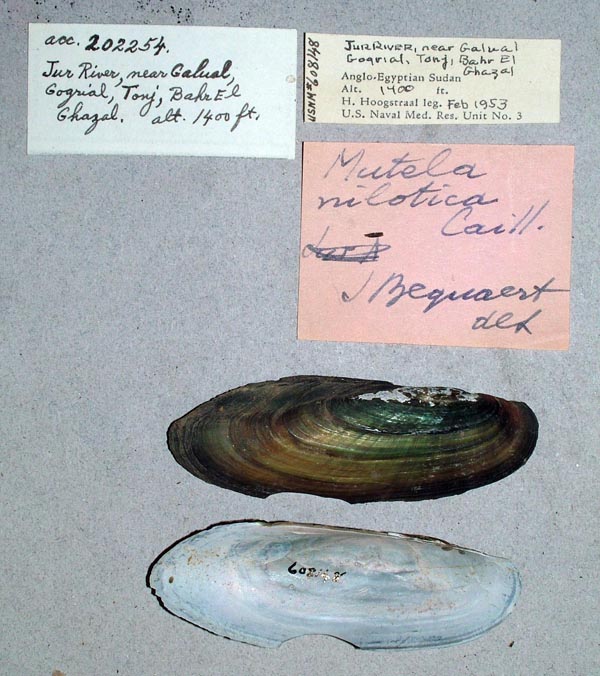 acc. 202254.
Jur River, near Galual,
Gogrial, Tonj, Bahr El
Ghazal. alt. 1400 ft.
USNM# 608148
Jur River, near Galual
Gogrial, Tonj, Bahr El
Ghazal
Anglo-Egyptian Sudan
Alt. 1400 ft.
H. Hoogstraal leg. Feb 1953
U.S. Naval Med. Res. Unit No. 3
Mutela
nilotica
Caill.
J Bequaert
det
608148